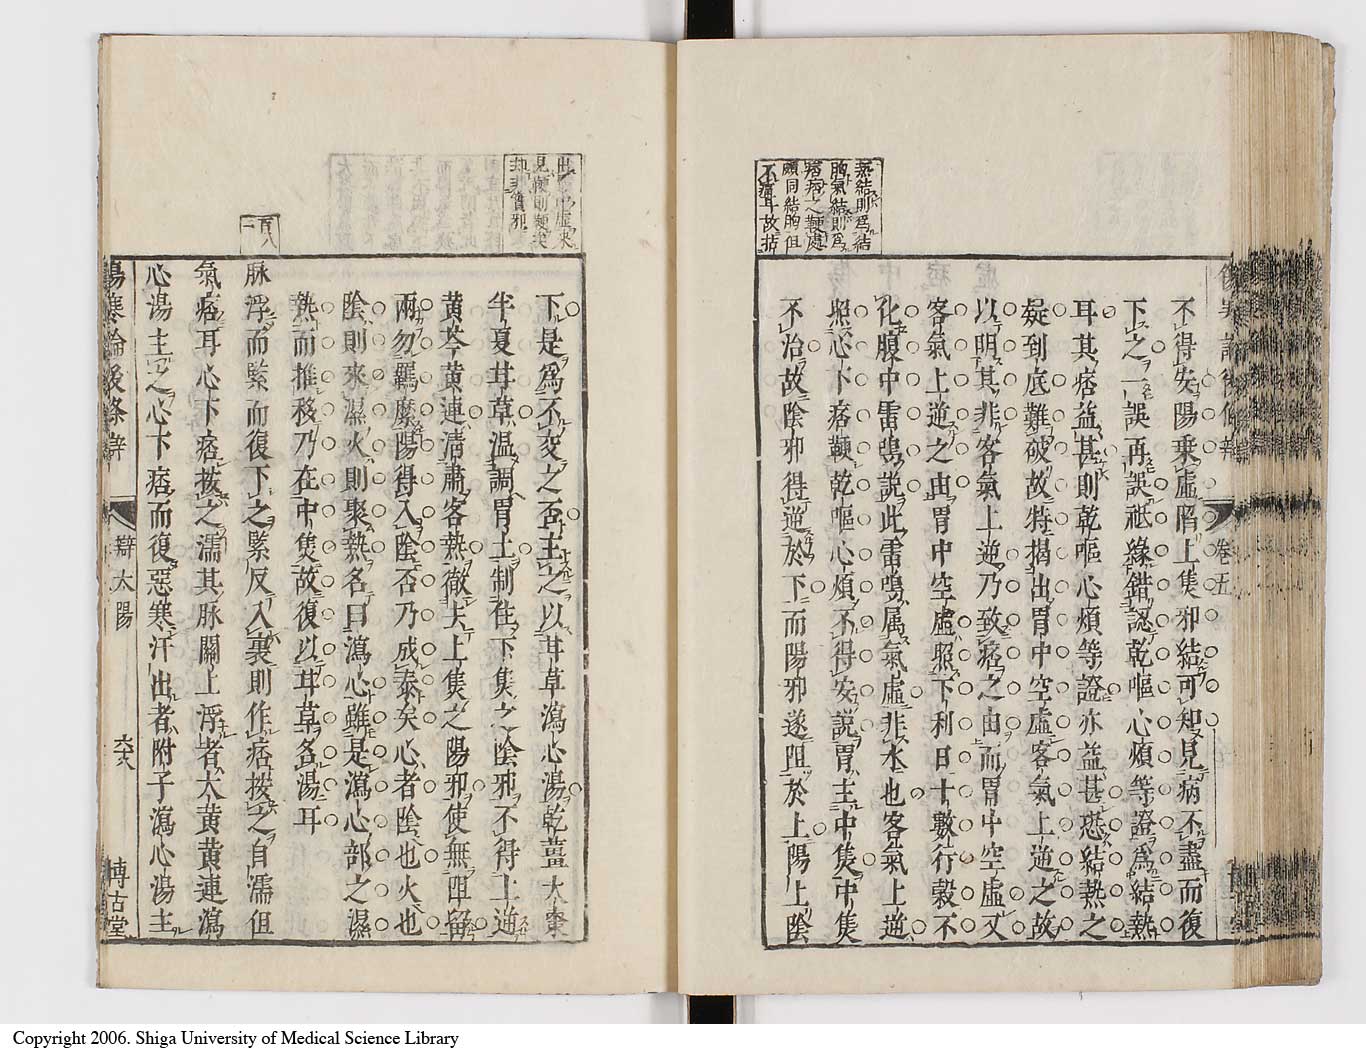 熱結則為結
胸氣結則為
痞痞之鞕處
頗同結胸但
不痛耳故拈
不得安陽乗虚陷上隻邪結可知見病不盡而復
下之一誤再誤祗緣錯認乾嘔心煩等證為結熱
耳其痞益甚則乾嘔心煩等證亦益甚恐結熱之
疑到底難破故特揭出胃中空虚客氣上逆之故
以明其非客氣上逆乃致痞之由而胃中空虚又
客氣上逆之由胃中空虚照下利日十數行穀不
化腹中雷鳴説此雷鳴属氣虚非水也客氣上逆
照心下痞鞕乾嘔心煩不得安説胃主中焦中焦
不治故陰邪得逆於下而陽邪遂阻於上陽上陰
卷五
見鞕則鞕
却非實邪
下是為不交之否主之以甘草瀉心湯乾薑大棗
半夏甘草温調胃土制住下焦之陰邪不得上逆
黄芩黄連清肅客熱徹去上焦之陽邪使無阻留
兩勿羈縻陽得入陰否乃成泰矣心者陰也火也
陰則來濕火則聚熱名曰瀉心雖是瀉心部之濕
熱而推移乃在中焦故復以甘草名湯耳
脉浮而緊而復下之緊反入裏則作痞按之自濡但
氣痞耳心下痞按之濡其脉關上浮者大黄黄連瀉
心湯主之心下痞而復惡寒汗出者附子瀉心湯主
傷寒論後條辨
辯太陽
六十八
博古堂